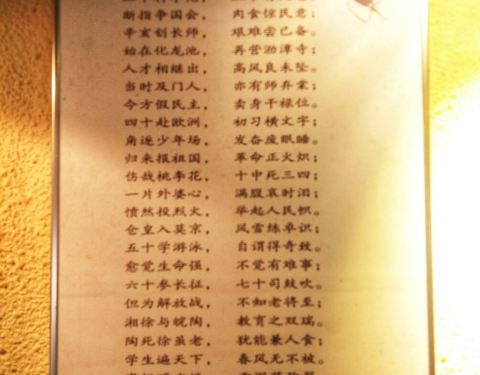 断指争国会，肉食惊民意；
辛亥刮长师，艰难尝已备。
始在化龙池，再营浏潭寺；
人才相继出，高风良未坠。
当时及门人，亦有师弃累；
今方假民主，卖身干禄位。
四十赴欧洲，初习横文字；
角逐少年场，发奋废眠睡。
归来报祖国，革命正火炽；
伤哉桃李花，十中死三四；
一片外婆心，满腹哀时泪；
愤然投烈火，举起人民帜。
仓皇入莫京，风雪练卓识；
五十学游泳，自谓得奇致。
愈觉生命强，不觉有难事；
六十参长征，七十司鼓吹。
但为解放战，不知老将至；
湘徐与皖陶，教育之双瑞。
陶死徐虽老，犹能兼人食；
学生遍天下，春风无不被。